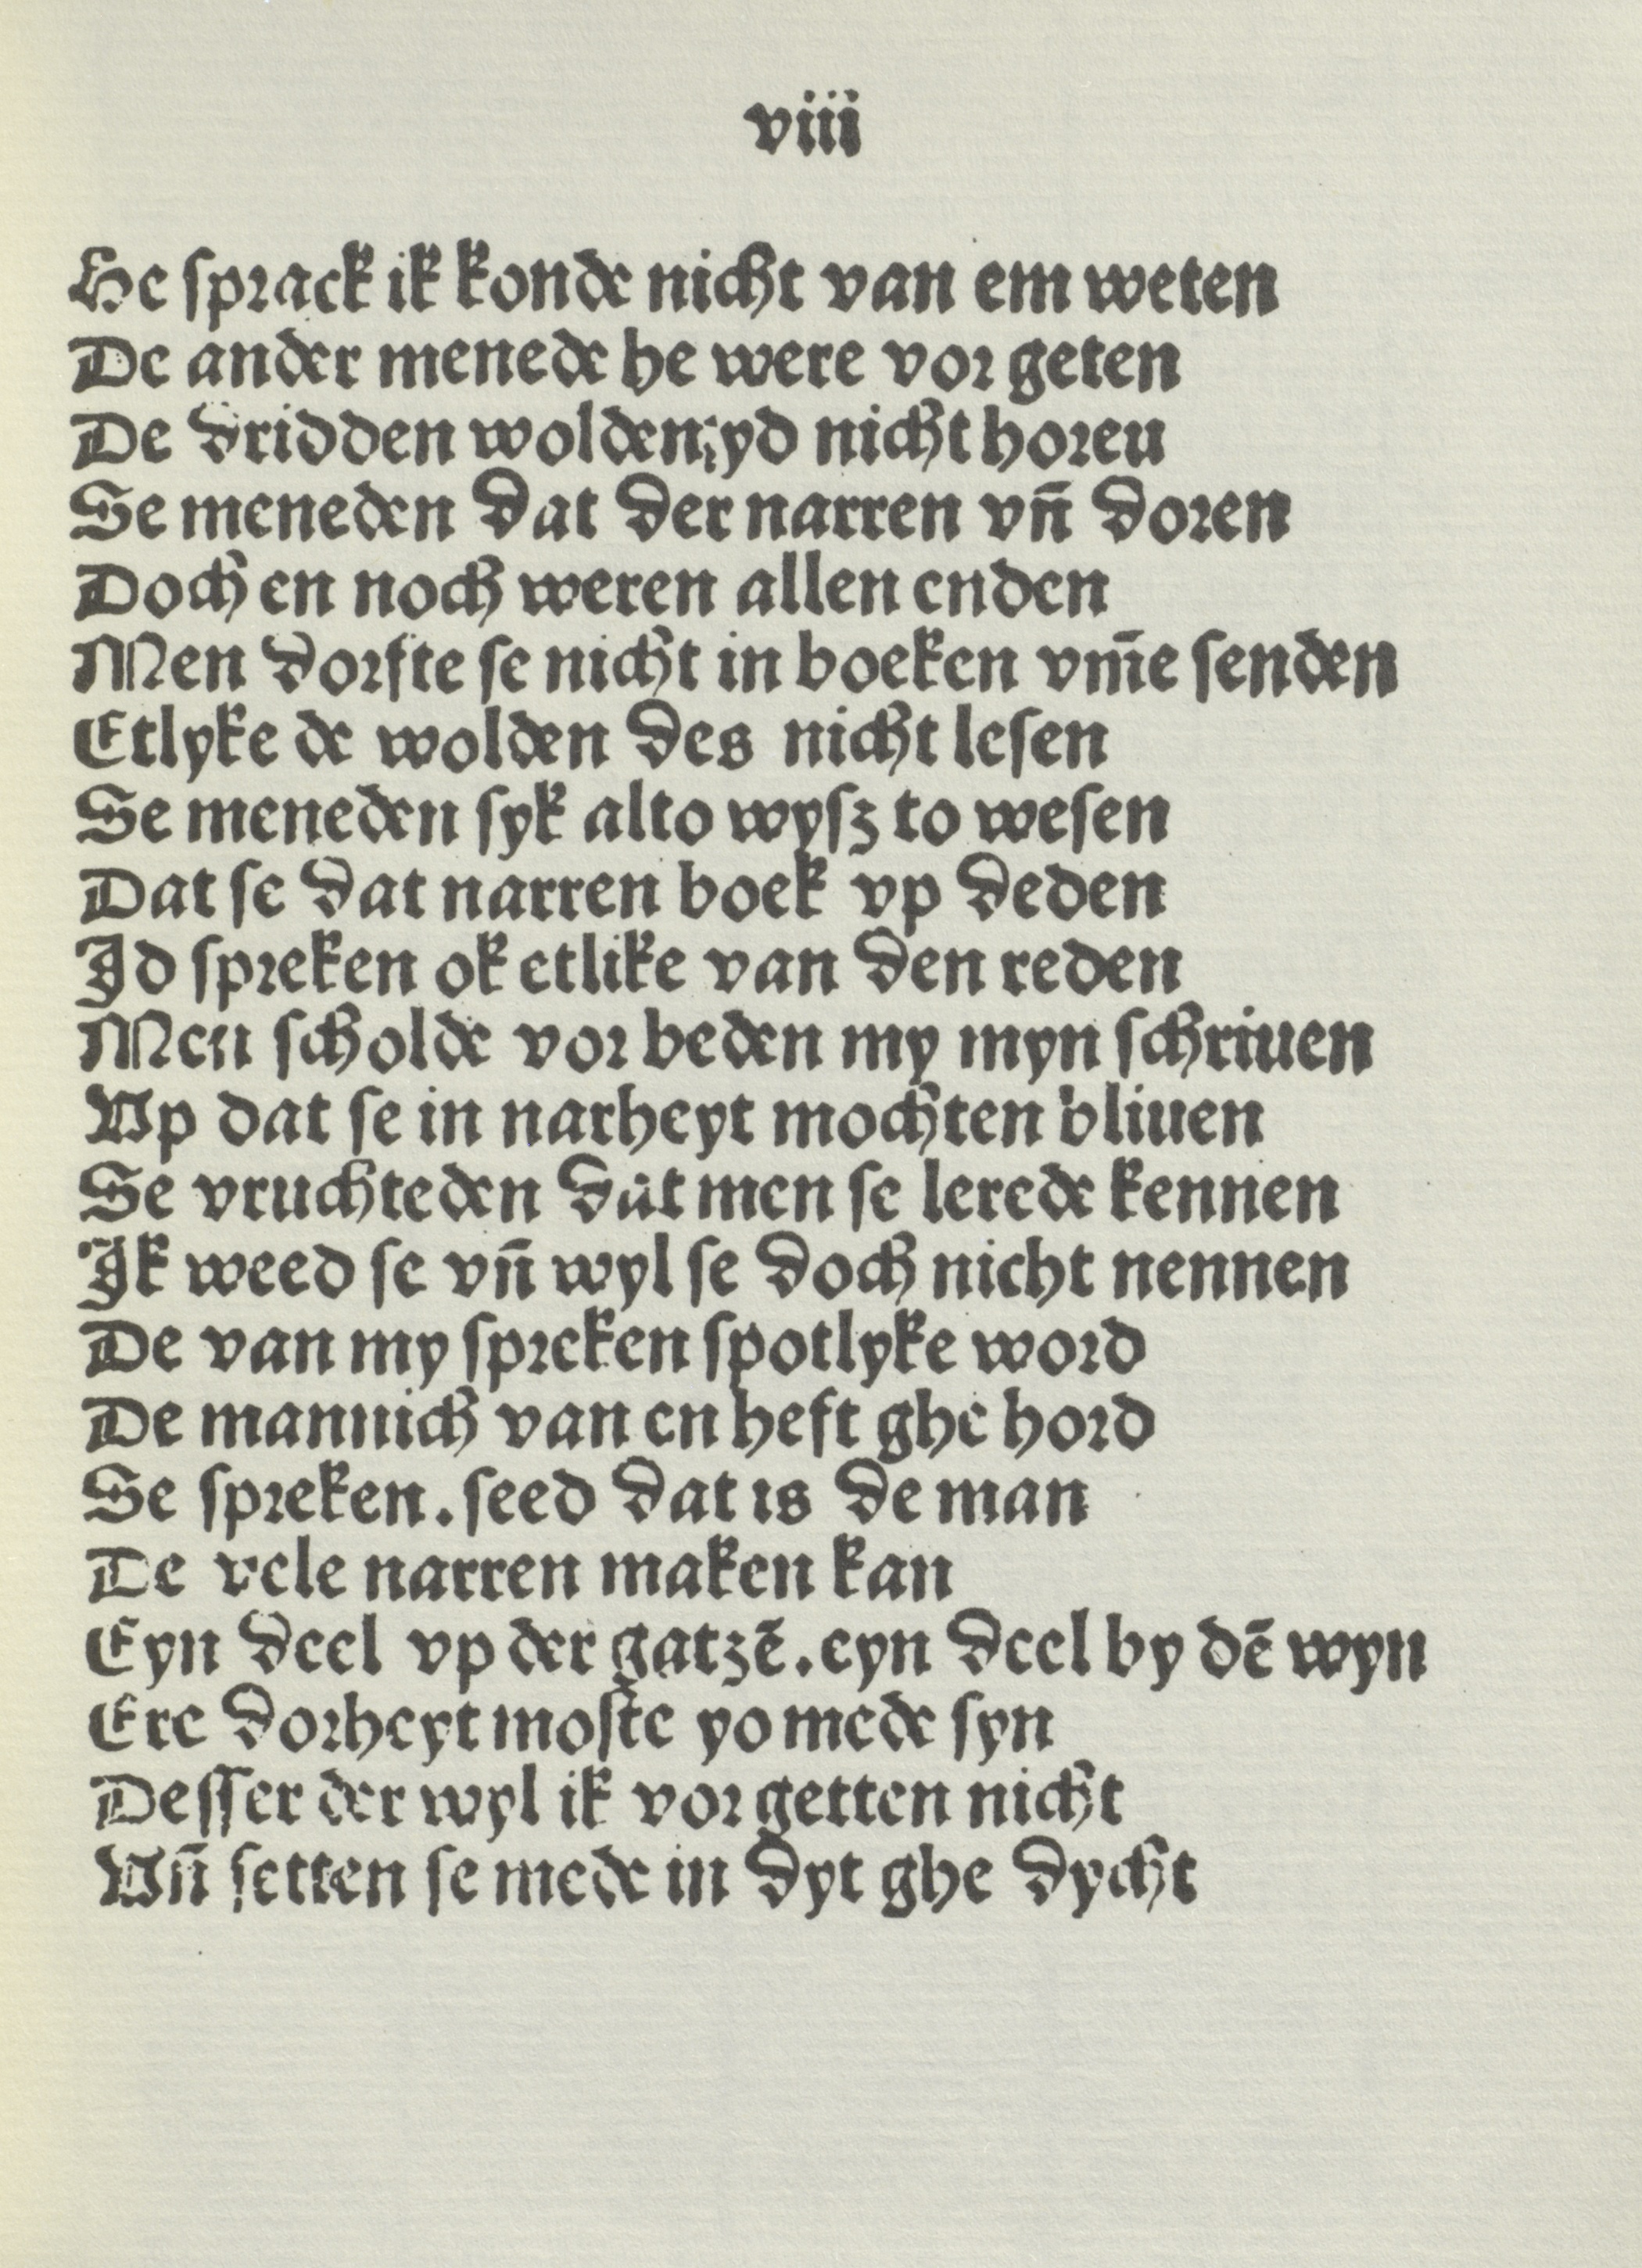 viii
He sprack ik konde nicht van em weten
De ander menede he were vor geten
De dridden wolden yd nicht horeu
Se meneden dat der narren vn̄ doren
Doch en noch weren allen enden
Men dorfte se nicht in boeken vm̄e senden
Etlyke de wolden des nicht lesen
Se meneden syk alto wysz to wesen
Dat se dat narren boek vp deden
Id spreken ok etlike van den reden
Men scholde vor beden my myn schriuen
Vp dat se in narheyt mochten bliuen
Se vruchteden dat men se lerede kennen
Ik weed se vn̄ wyl se doch nicht nennen
De van my spreken spotlyke word
De mannich van en heft ghe hord
Se spreken. seed dat is de man
De vele narren maken kan
Eyn deel vp der gatzē. eyn deel by dē wyn
Ere dorheyt moste yo mede syn
Desser der wyl ik vor getten nicht
Vn̄ setten se mede in dyt ghe dycht